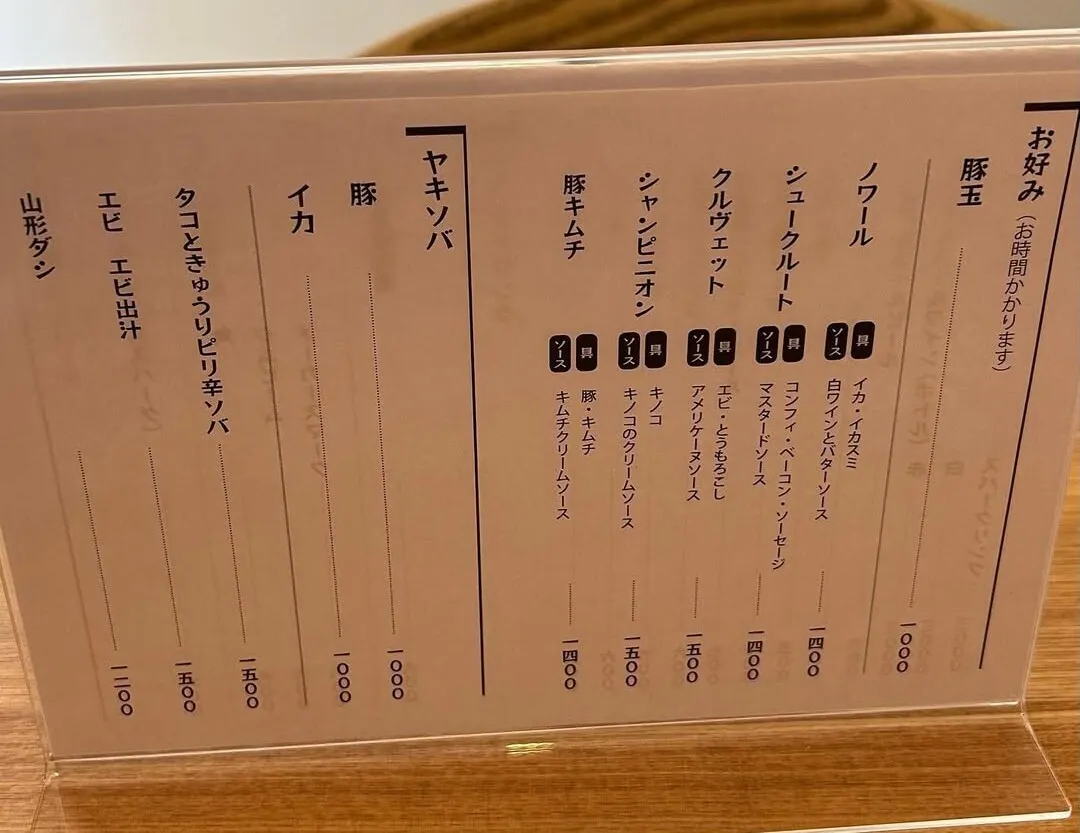 お好み（お時間かかります）
豚玉 一〇〇〇
ノワール 具 イカ・イカスミ
ソース 白ワインとバターソース 一四〇〇
シュークルート 具 コンフィ・ベーコン・ソーセージ
ソース マスタードソース 一四〇〇
クルヴェット 具 エビ・とうもろこし
ソース アメリケーヌソース 一五〇〇
シャンピニオン 具 キノコ
ソース キノコのクリームソース 一五〇〇
豚キムチ 具 豚・キムチ
ソース キムチクリームソース 一四〇〇
ヤキソバ
豚 一〇〇〇
イカ 一〇〇〇
タコときゅうりピリ辛ソバ 一五〇〇
エビ エビ出汁 一五〇〇
山形ダシ 一二〇〇